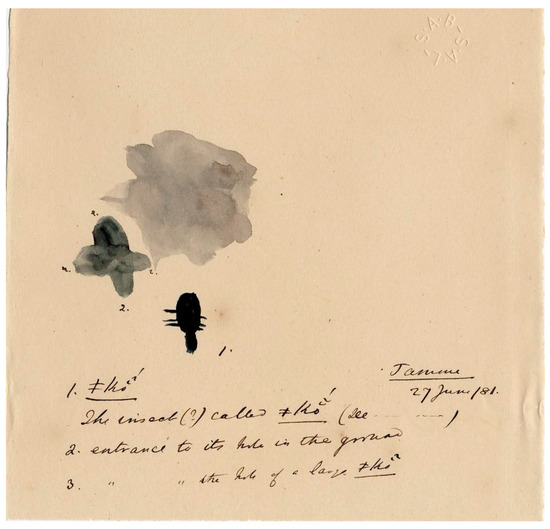 S·A·B·L·A·S
2.
2.
2.
2.
1.
Tamme
27 June/81.
1. ǂkó̃
The insect (?) called ǂkó̃ (See — —)
2. entrance to its hole in the ground
3. " " the hole of a large ǂkó̃